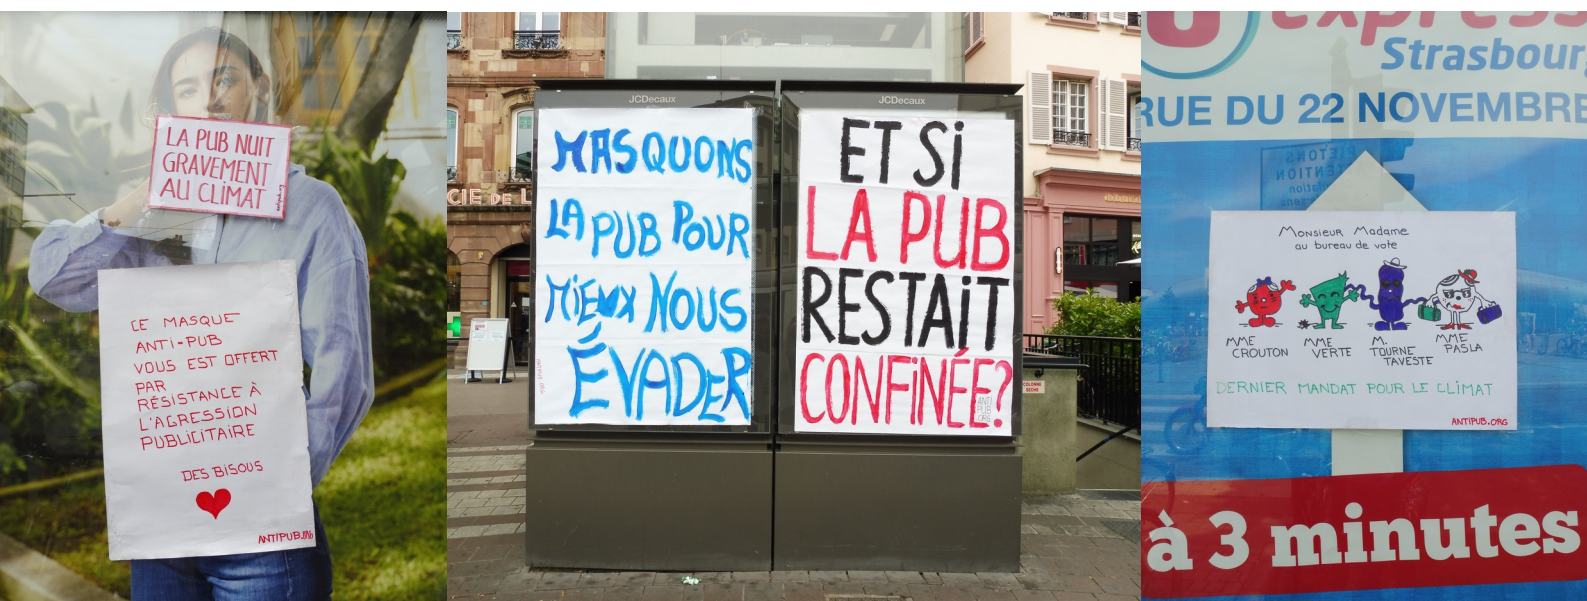 LA PUB NUIT
GRAVEMENT
AU CLIMAT
CE MASQUE
ANTI-PUB
VOUS EST OFFERT
PAR
RÉSISTANCE À
L'AGRESSION
PUBLICITAIRE
DES BISOUS
ANTIPUB.ORG
JCDecaux
MASQUONS
LA PUB POUR
MIEUX NOUS
ÉVADER
CIE DE L
JCDecaux
ET Si
LA PUB
RESTAiT
CONFiNÉE?
ANTI
PUB
.ORG
COLONNE
SECHE
express
Strasbourg
RUE DU 22 NOVEMBRE
Monsieur Madame
au bureau de vote
MME
CROUTON
MME
VERTE
M.
TOURNE
TAVESTE
MME
PASLA
DERNIER MANDAT POUR LE CLIMAT
ANTIPUB.ORG
à 3 minutes